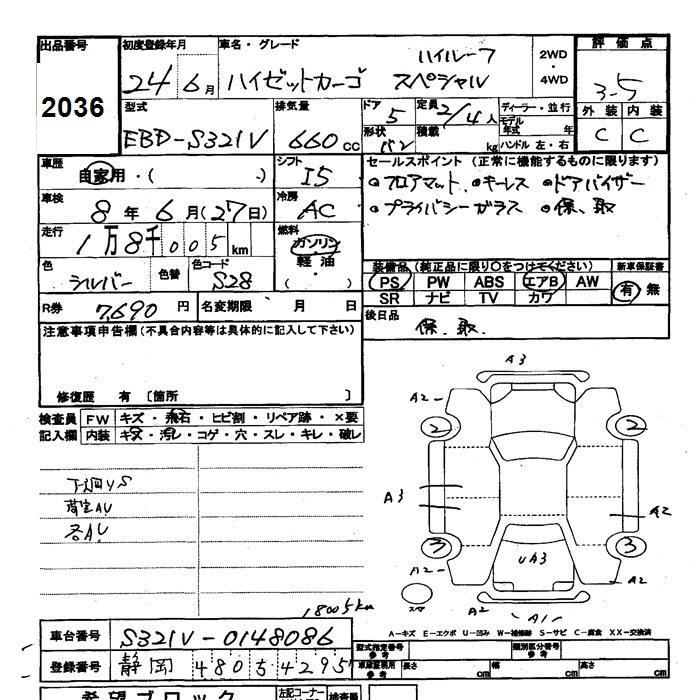 出品番号 初度登録年月 車名・グレード 評価点
2036 24 6月 ハイゼットカーゴ ハイルーフ スペシャル 2WD・4WD 3.5
型式 排気量 ドア 5 定員 2/4人 ディーラー・並行 外装 内装
EBD-S321V 660cc 形状 バン 積載 kg モデル年式 年 ハンドル 左・右 C C
車歴 自家用・( ) シフト I5 セールスポイント(正常に機能するものに限ります)
車検 8年6月(27日) 冷房 AC ●フロアマット ●キーレス ●ドアバイザー
●プライバシーガラス ●保、取
走行 1万8千005km 燃料 ガソリン 軽油・( )
色 シルバー 色替 色コード S28 装備品(純正品に限り○をつけてください) 新車保証書
PS PW ABS エアB AW 有 無
SR ナビ TV カワ
R券 7,690円 名変期限 月 日 後日品 保、取、
注意事項申告欄(不具合内容等は具体的に記入して下さい)
修復歴 有 〔箇所 〕
検査員 FW キズ・飛石・ヒビ割・リペア跡・×要
記入欄 内装 キズ・汚レ・コゲ・穴・スレ・キレ・破レ
下回りS
荷室AU
各AU
A3
A2 2 2
A3 A2
3 3
UA3
A2 A2
スペア A2 A1
18005km
A-キズ E-エクボ U-凹み W-補修跡 S-サビ C-腐食 XX-交換済
車台番号 S321V-0148086 型式指定番号 参考 類別区分番号 参考
登録番号 静岡 480 5 4295 車庫証明用 参考 長さ cm 幅 cm 高さ cm
希望ブロック 左記コーナー 検査員